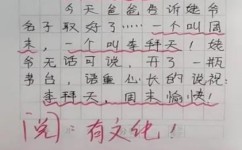 今天爸爸告诉姥爷
名子取好了……一个叫周
末,一个叫李拜天!姥
爷无话可说,开了一瓶
茅台,语重心长的说祝:
李拜天,周末愉快!
阅:有文化!